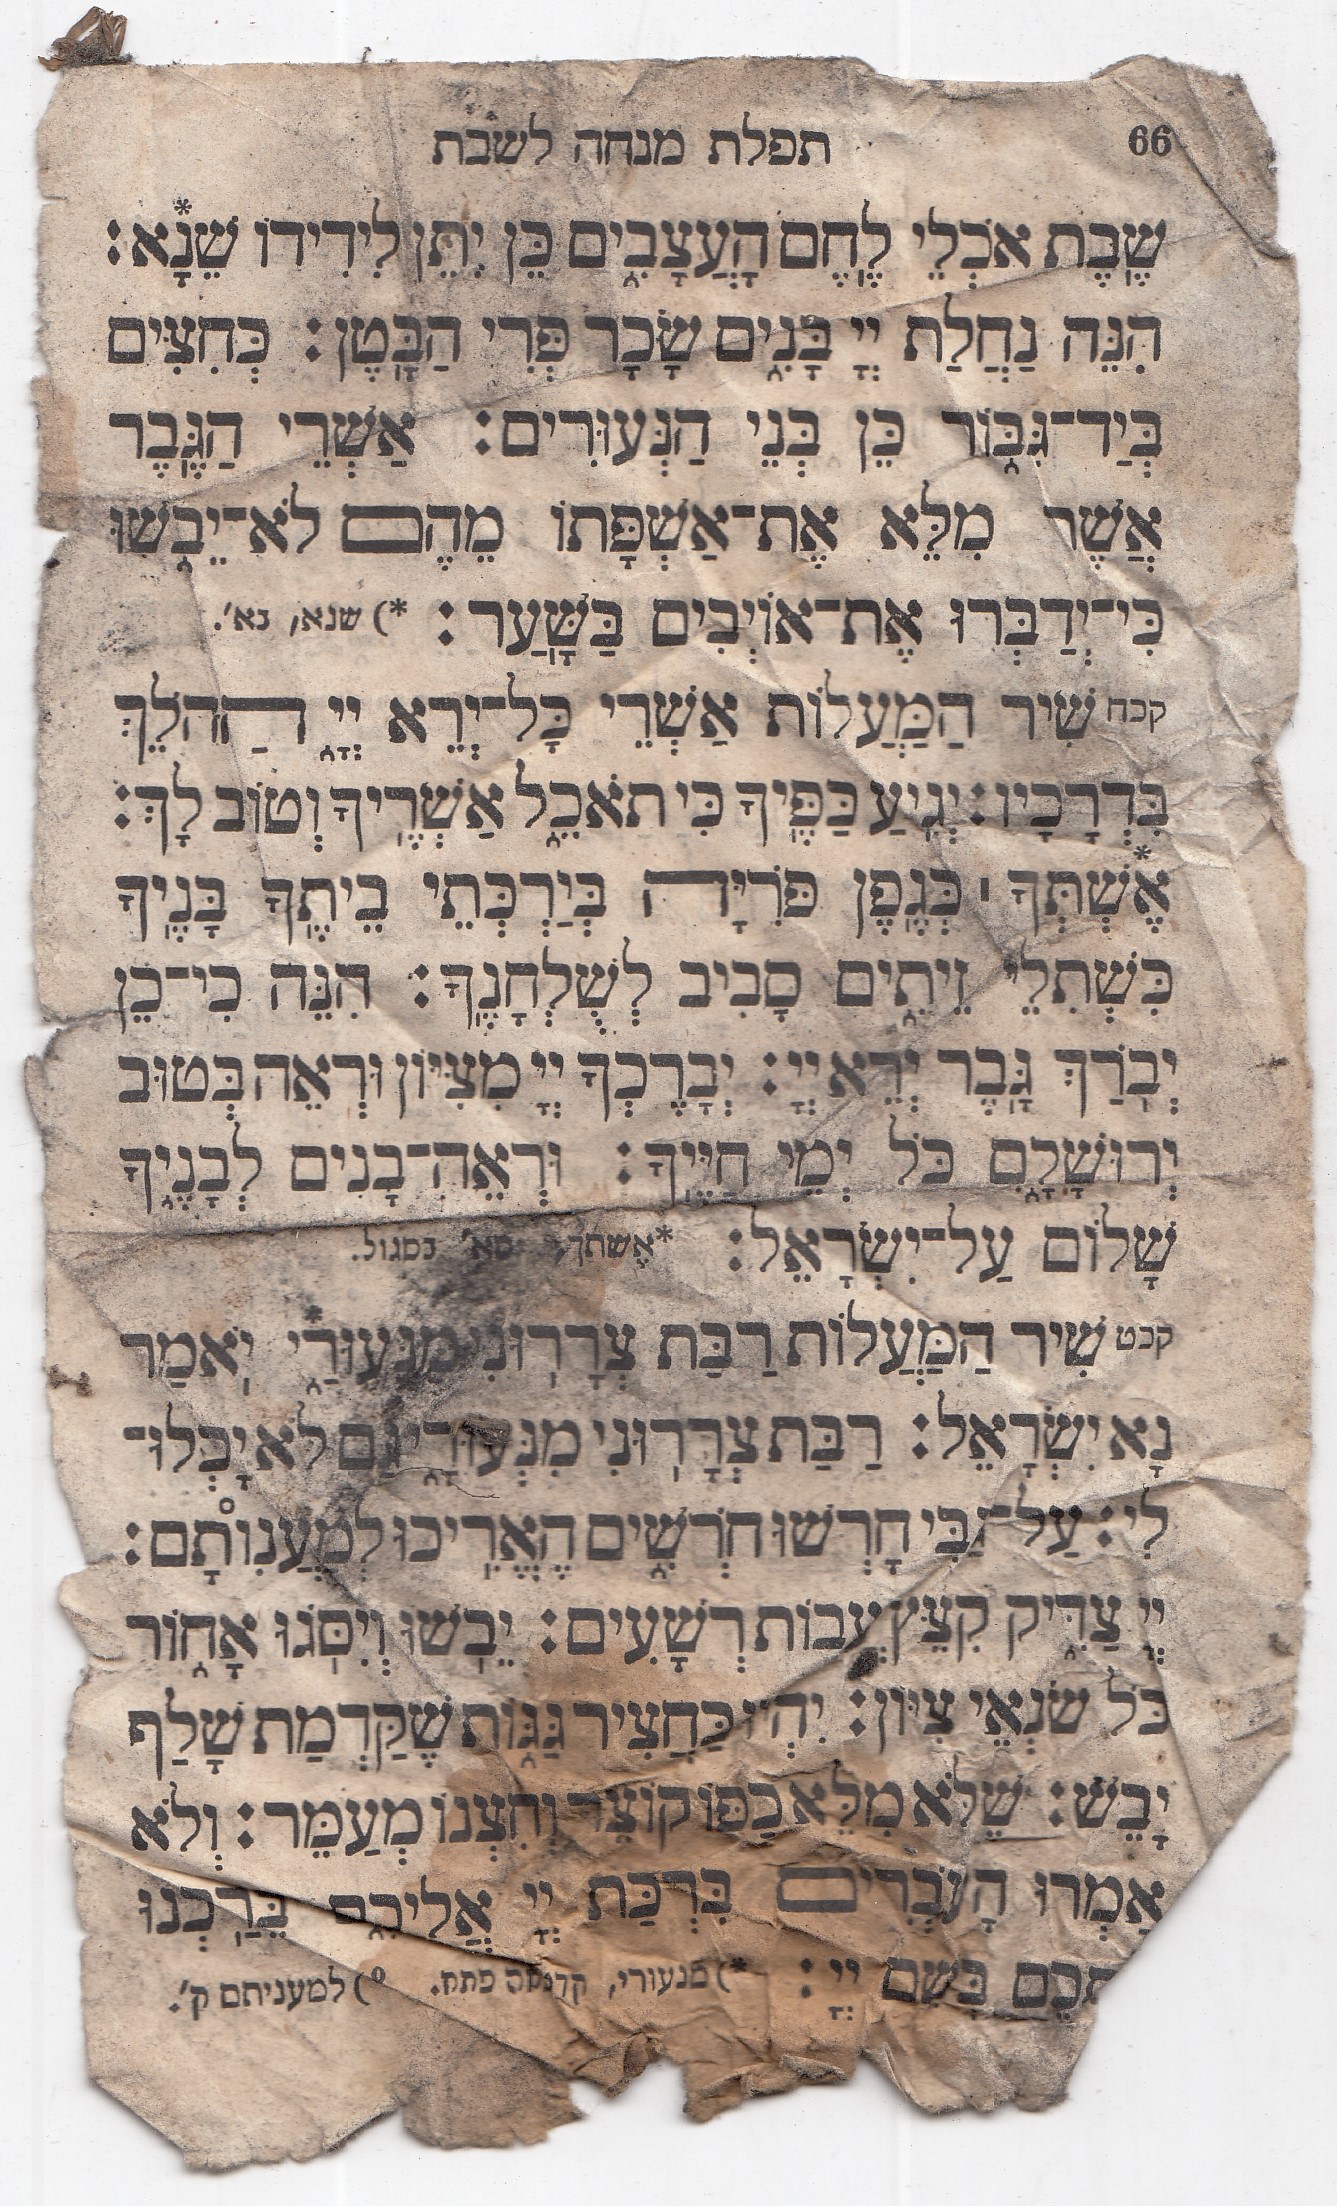 66 תפלת מנחה לשבת
שֶׁבֶת אֹכְלֵי לֶחֶם הָעֲצָבִים כֵּן יִתֵּן לִידִידוֹ שֵׁנָא*׃
הִנֵּה נַחֲלַת יְיָ בָּנִים שָׂכָר פְּרִי הַבָּטֶן׃ כְּחִצִּים
בְּיַד־גִּבּוֹר כֵּן בְּנֵי הַנְּעוּרִים׃ אַשְׁרֵי הַגֶּבֶר
אֲשֶׁר מִלֵּא אֶת־אַשְׁפָּתוֹ מֵהֶם לֹא־יֵבֹשׁוּ
כִּי־יְדַבְּרוּ אֶת־אוֹיְבִים בַּשָּׁעַר׃ *) שנא, בא'.
קכח שִׁיר הַמַּעֲלוֹת אַשְׁרֵי כָּל־יְרֵא יְיָ הַהֹלֵךְ
בִּדְרָכָיו׃ יְגִיעַ כַּפֶּיךָ כִּי תֹאכֵל אַשְׁרֶיךָ וְטוֹב לָךְ׃
אֶשְׁתְּךָ* ׀ כְּגֶפֶן פֹּרִיָּה בְּיַרְכְּתֵי בֵיתֶךָ בָּנֶיךָ
כִּשְׁתִלֵי זֵיתִים סָבִיב לְשֻׁלְחָנֶךָ׃ הִנֵּה כִי־כֵן
יְבֹרַךְ גָּבֶר יְרֵא יְיָ׃ יְבָרֶכְךָ יְיָ מִצִּיּוֹן וּרְאֵה בְּטוּב
יְרוּשָׁלָםִ כֹּל יְמֵי חַיֶּיךָ׃ וּרְאֵה־בָנִים לְבָנֶיךָ
שָׁלוֹם עַל־יִשְׂרָאֵל׃ *אֶשתך, סא' בסגול.
קכט שִׁיר הַמַּעֲלוֹת רַבַּת צְרָרוּנִי מִנְּעוּרַי* יֹאמַר
נָא יִשְׂרָאֵל׃ רַבַּת צְרָרוּנִי מִנְּעוּרָי גַּם לֹא יָכְלוּ־
לִי׃ עַל־גַּבִּי חָרְשׁוּ חֹרְשִׁים הֶאֱרִיכוּ לְמַעֲנִוֹתָם°׃
יְיָ צַדִּיק קִצֵּץ עֲבוֹת רְשָׁעִים׃ יֵבֹשׁוּ וְיִסֹּגוּ אָחוֹר
כֹּל שֹׂנְאֵי צִיּוֹן׃ יִהְיוּ כַּחֲצִיר גַּגּוֹת שֶׁקַּדְמַת שָׁלַף
יָבֵשׁ׃ שֶׁלֹּא מִלֵּא כַפּוֹ קוֹצֵר וְחִצְנוֹ מְעַמֵּר׃ וְלֹא
אָמְרוּ הָעֹבְרִים בִּרְכַּת יְיָ אֲלֵיכֶם בֵּרַכְנוּ
תְכֶם בְּשֵׁם יְיָ׃ *) מנעורי, קדמאה פתח. °) למעניתם ק'.